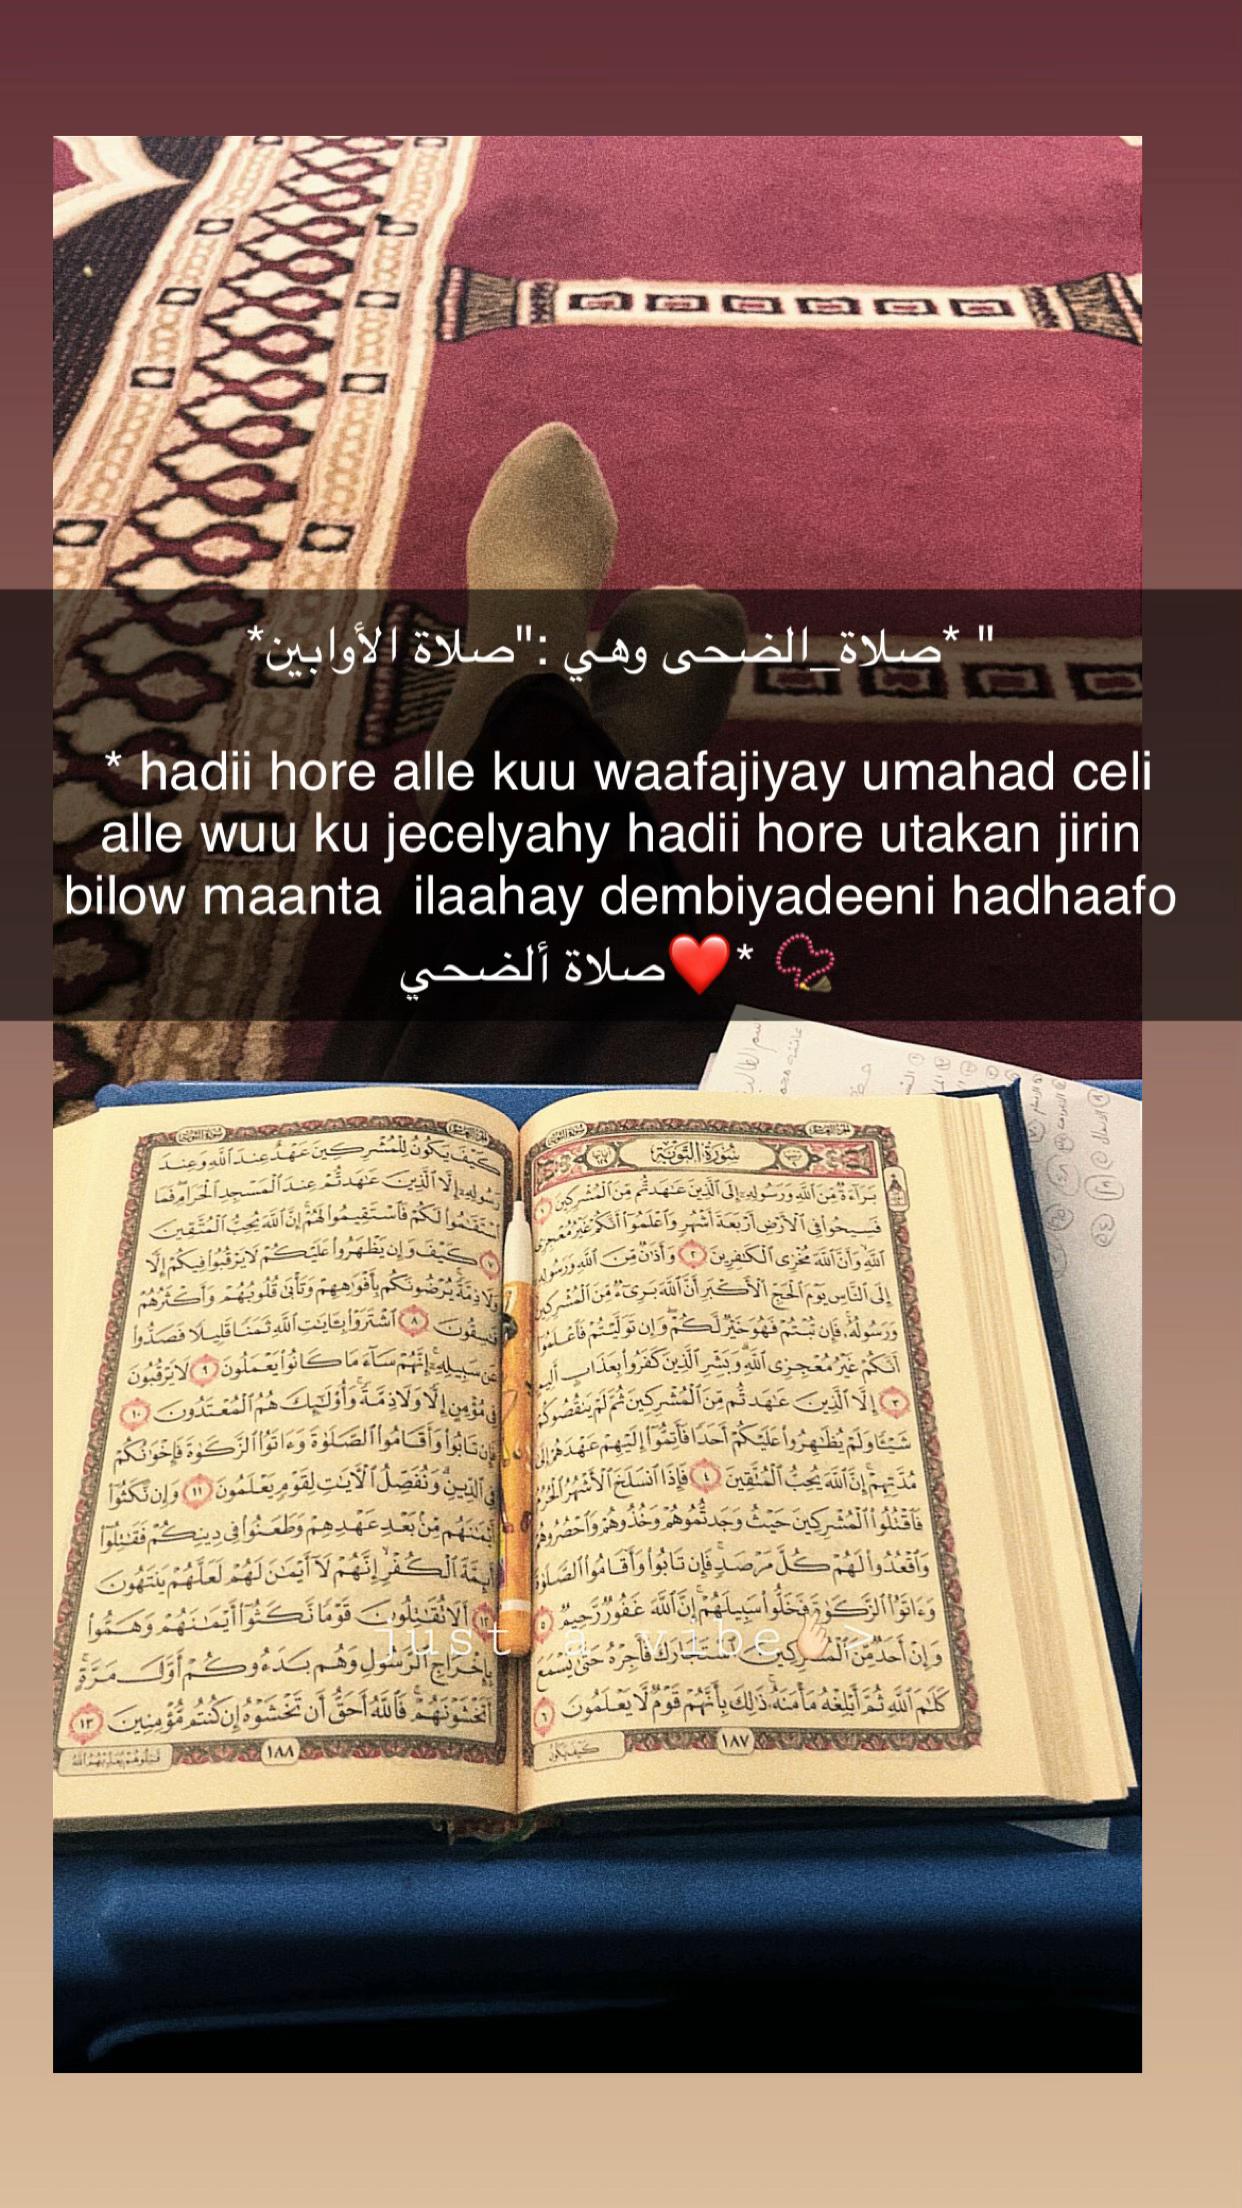 " *صلاة_الضحى وهي :"صلاة الأوابين*
* hadii hore alle kuu waafajiyay umahad celi
alle wuu ku jecelyahy hadii hore utakan jirin
bilow maanta ilaahay dembiyadeeni hadhaafo
📿 *❤️صلاة ألضحي
سورة التوبة
بَرَاءَةٌ مِّنَ ٱللَّهِ وَرَسُولِهِۦٓ إِلَى ٱلَّذِينَ عَٰهَدتُّم مِّنَ ٱلْمُشْرِكِينَ ١
فَسِيحُوا۟ فِى ٱلْأَرْضِ أَرْبَعَةَ أَشْهُرٍ وَٱعْلَمُوٓا۟ أَنَّكُمْ غَيْرُ مُعْجِزِى
ٱللَّهِ وَأَنَّ ٱللَّهَ مُخْزِى ٱلْكَٰفِرِينَ ٢ وَأَذَٰنٌ مِّنَ ٱللَّهِ وَرَسُولِهِۦٓ
إِلَى ٱلنَّاسِ يَوْمَ ٱلْحَجِّ ٱلْأَكْبَرِ أَنَّ ٱللَّهَ بَرِىٓءٌ مِّنَ ٱلْمُشْرِكِينَ
وَرَسُولُهُۥ فَإِن تُبْتُمْ فَهُوَ خَيْرٌ لَّكُمْ وَإِن تَوَلَّيْتُمْ فَٱعْلَمُوٓا۟
أَنَّكُمْ غَيْرُ مُعْجِزِى ٱللَّهِ وَبَشِّرِ ٱلَّذِينَ كَفَرُوا۟ بِعَذَابٍ أَلِيمٍ
٣ إِلَّا ٱلَّذِينَ عَٰهَدتُّم مِّنَ ٱلْمُشْرِكِينَ ثُمَّ لَمْ يَنقُصُوكُمْ
شَيْـًٔا وَلَمْ يُظَٰهِرُوا۟ عَلَيْكُمْ أَحَدًا فَأَتِمُّوٓا۟ إِلَيْهِمْ عَهْدَهُمْ إِلَىٰ
مُدَّتِهِمْ إِنَّ ٱللَّهَ يُحِبُّ ٱلْمُتَّقِينَ ٤ فَإِذَا ٱنسَلَخَ ٱلْأَشْهُرُ ٱلْحُرُمُ
فَٱقْتُلُوا۟ ٱلْمُشْرِكِينَ حَيْثُ وَجَدتُّمُوهُمْ وَخُذُوهُمْ وَٱحْصُرُوهُمْ
وَٱقْعُدُوا۟ لَهُمْ كُلَّ مَرْصَدٍ فَإِن تَابُوا۟ وَأَقَامُوا۟ ٱلصَّلَوٰةَ
وَءَاتَوُا۟ ٱلزَّكَوٰةَ فَخَلُّوا۟ سَبِيلَهُمْ إِنَّ ٱللَّهَ غَفُورٌ رَّحِيمٌ ٥
وَإِنْ أَحَدٌ مِّنَ ٱلْمُشْرِكِينَ ٱسْتَجَارَكَ فَأَجِرْهُ حَتَّىٰ يَسْمَعَ
كَلَٰمَ ٱللَّهِ ثُمَّ أَبْلِغْهُ مَأْمَنَهُۥ ذَٰلِكَ بِأَنَّهُمْ قَوْمٌ لَّا يَعْلَمُونَ ٦
كيف يكون
١٨٧
كَيْفَ يَكُونُ لِلْمُشْرِكِينَ عَهْدٌ عِندَ ٱللَّهِ وَعِندَ
رَسُولِهِۦٓ إِلَّا ٱلَّذِينَ عَٰهَدتُّمْ عِندَ ٱلْمَسْجِدِ ٱلْحَرَامِ فَمَا
ٱسْتَقَٰمُوا۟ لَكُمْ فَٱسْتَقِيمُوا۟ لَهُمْ إِنَّ ٱللَّهَ يُحِبُّ ٱلْمُتَّقِينَ
٧ كَيْفَ وَإِن يَظْهَرُوا۟ عَلَيْكُمْ لَا يَرْقُبُوا۟ فِيكُمْ إِلًّا
وَلَا ذِمَّةً يُرْضُونَكُم بِأَفْوَٰهِهِمْ وَتَأْبَىٰ قُلُوبُهُمْ وَأَكْثَرُهُمْ
فَٰسِقُونَ ٨ ٱشْتَرَوْا۟ بِـَٔايَٰتِ ٱللَّهِ ثَمَنًا قَلِيلًا فَصَدُّوا۟
عَن سَبِيلِهِۦٓ إِنَّهُمْ سَآءَ مَا كَانُوا۟ يَعْمَلُونَ ٩ لَا يَرْقُبُونَ
فِى مُؤْمِنٍ إِلًّا وَلَا ذِمَّةً وَأُو۟لَٰٓئِكَ هُمُ ٱلْمُعْتَدُونَ ١٠
فَإِن تَابُوا۟ وَأَقَامُوا۟ ٱلصَّلَوٰةَ وَءَاتَوُا۟ ٱلزَّكَوٰةَ فَإِخْوَٰنُكُمْ
فِى ٱلدِّينِ وَنُفَصِّلُ ٱلْـَٔايَٰتِ لِقَوْمٍ يَعْلَمُونَ ١١ وَإِن نَّكَثُوٓا۟
أَيْمَٰنَهُم مِّنۢ بَعْدِ عَهْدِهِمْ وَطَعَنُوا۟ فِى دِينِكُمْ فَقَٰتِلُوٓا۟
أَئِمَّةَ ٱلْكُفْرِ إِنَّهُمْ لَآ أَيْمَٰنَ لَهُمْ لَعَلَّهُمْ يَنتَهُونَ
١٢ أَلَا تُقَٰتِلُونَ قَوْمًا نَّكَثُوٓا۟ أَيْمَٰنَهُمْ وَهَمُّوا۟
بِإِخْرَاجِ ٱلرَّسُولِ وَهُم بَدَءُوكُمْ أَوَّلَ مَرَّةٍ
أَتَخْشَوْنَهُمْ فَٱللَّهُ أَحَقُّ أَن تَخْشَوْهُ إِن كُنتُم مُّؤْمِنِينَ ١٣
١٨٨
just a vibe 👆🏻 >